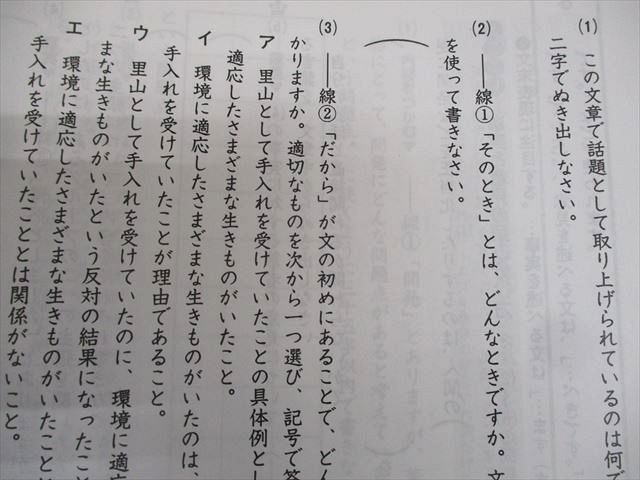 (1) この文章で話題として取り上げられているのは何で
二字でぬき出しなさい。
(2) ――線①「そのとき」とは、どんなときですか。文
を使って書きなさい。
(3) ――線②「だから」が文の初めにあることで、どん
かりますか。適切なものを次から一つ選び、記号で答
ア 里山として手入れを受けていたことの具体例とし
適応したさまざまな生きものがいたこと。
イ 環境に適応したさまざまな生きものがいたのは、
手入れを受けていたことが理由であること。
ウ 里山として手入れを受けていたのに、環境に適応
まな生きものがいたという反対の結果になったこと
エ 環境に適応したさまざまな生きものがいたことと
手入れを受けていたこととは関係がないこと。